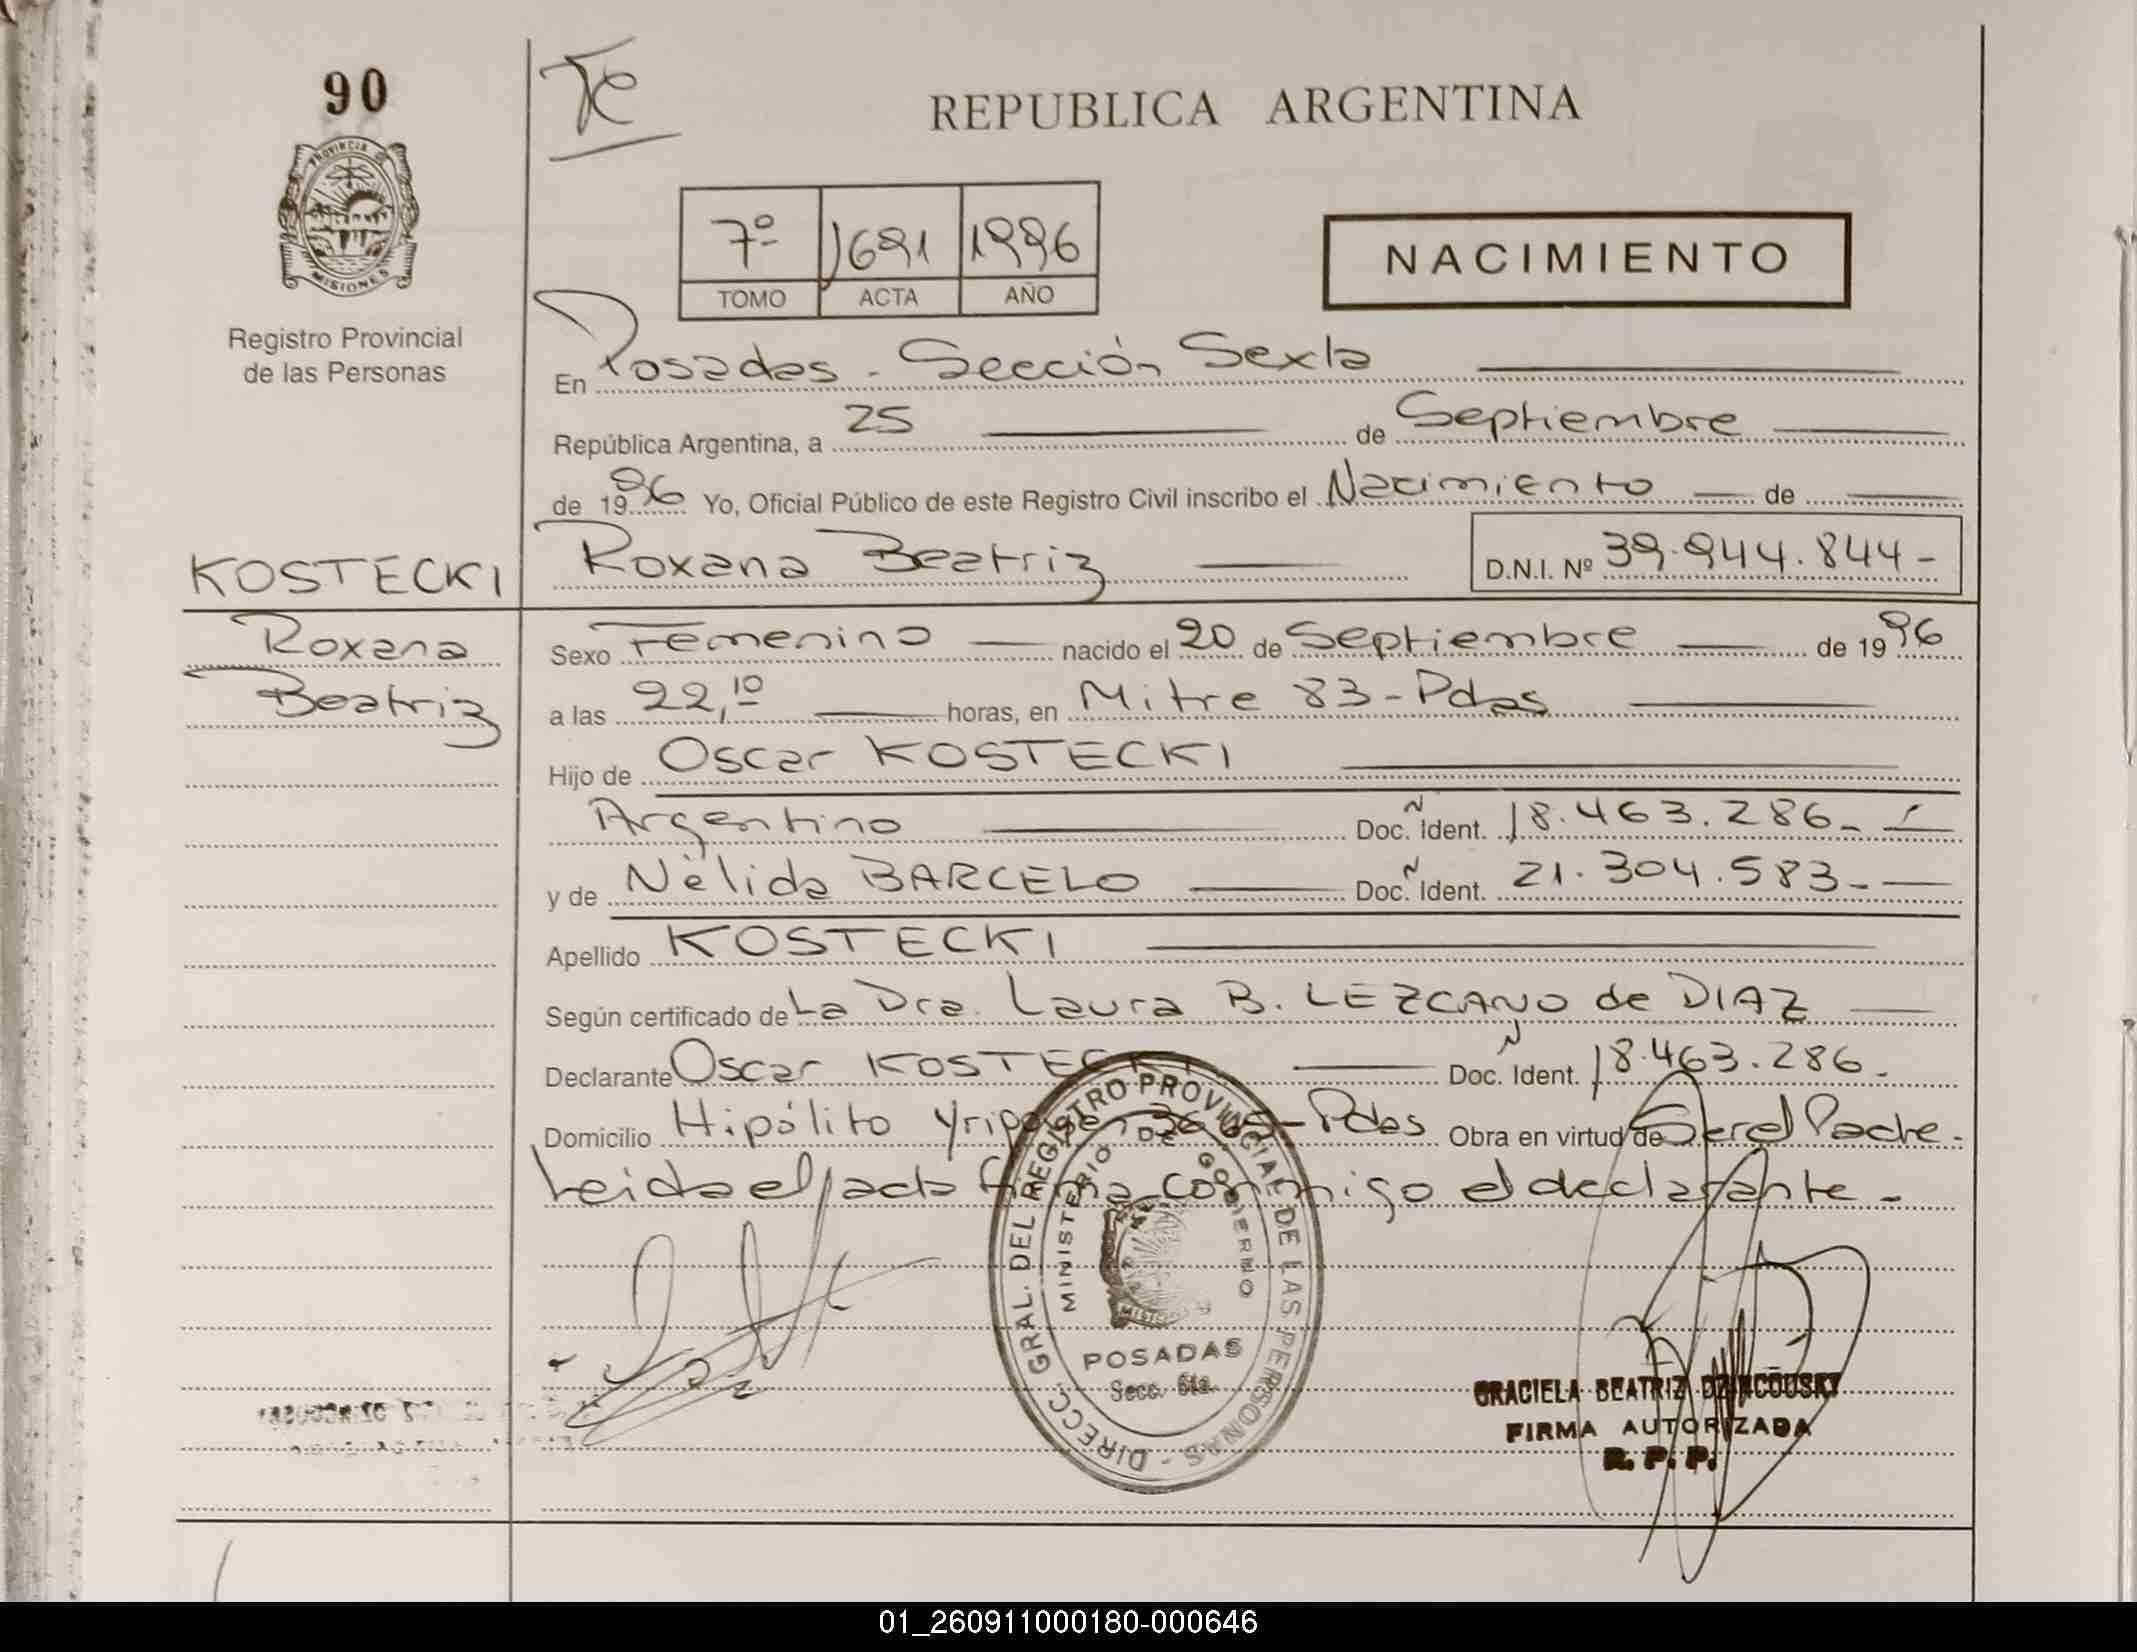 90
PROVINCIA DE
MISIONES
Registro Provincial
de las Personas
REPUBLICA ARGENTINA
7º 1691 1996
TOMO ACTA AÑO
NACIMIENTO
En Posadas - Sección Sexta
República Argentina, a 25 de Septiembre
de 1996 Yo, Oficial Público de este Registro Civil inscribo el Nacimiento de
KOSTECKI Roxana Beatriz D.N.I. Nº 39.944.844-
Roxana Sexo Femenino nacido el 20 de Septiembre de 1996
Beatriz a las 22,10 horas, en Mitre 83-Pdas
Hijo de Oscar KOSTECKI
Argentino Doc. Ident. 18.463.286-
y de Nélida BARCELO Doc. Ident. 21.304.583-
Apellido KOSTECKI
Según certificado de La Dra. Laura B. LEZCANO de DIAZ
Declarante Oscar KOSTECKI Doc. Ident. 18.463.286-
Domicilio Hipólito Yrigoyen Pdas Obra en virtud de Ser el Padre-
Leida el acta firma conmigo el declarante-
DIRECC. GRAL. DEL REGISTRO PROVINCIAL DE LAS PERSONAS -
MINISTERIO DE GOBIERNO
POSADAS
Secc. 6ta.
GRACIELA BEATRIZ
FIRMA AUTORIZADA
R. P. P.
01_260911000180-000646